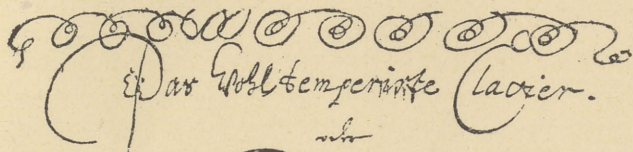 Das Wohltemperirte Clavier.
oder